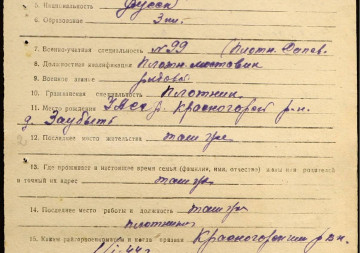 5. Национальность русск
6. Образование 3 кл.
7. Военно-учетная специальность №99 (Плотн.
8. Должностная квалификация Плотн. мостовик
9. Военное звание рядовой
10. Гражданская специальность Плотник
11. Место рождения р. Красногорск р-н.
д. Заубыть
12. Последнее место жительства там же
13. Где проживает в настоящее время семья (фамилия, имя, отчество) жены или родителей
и точный их адрес там же
14. Последнее место работы и должность там же
плотник
15. Каким райвоенкоматом и когда призван Красногорским